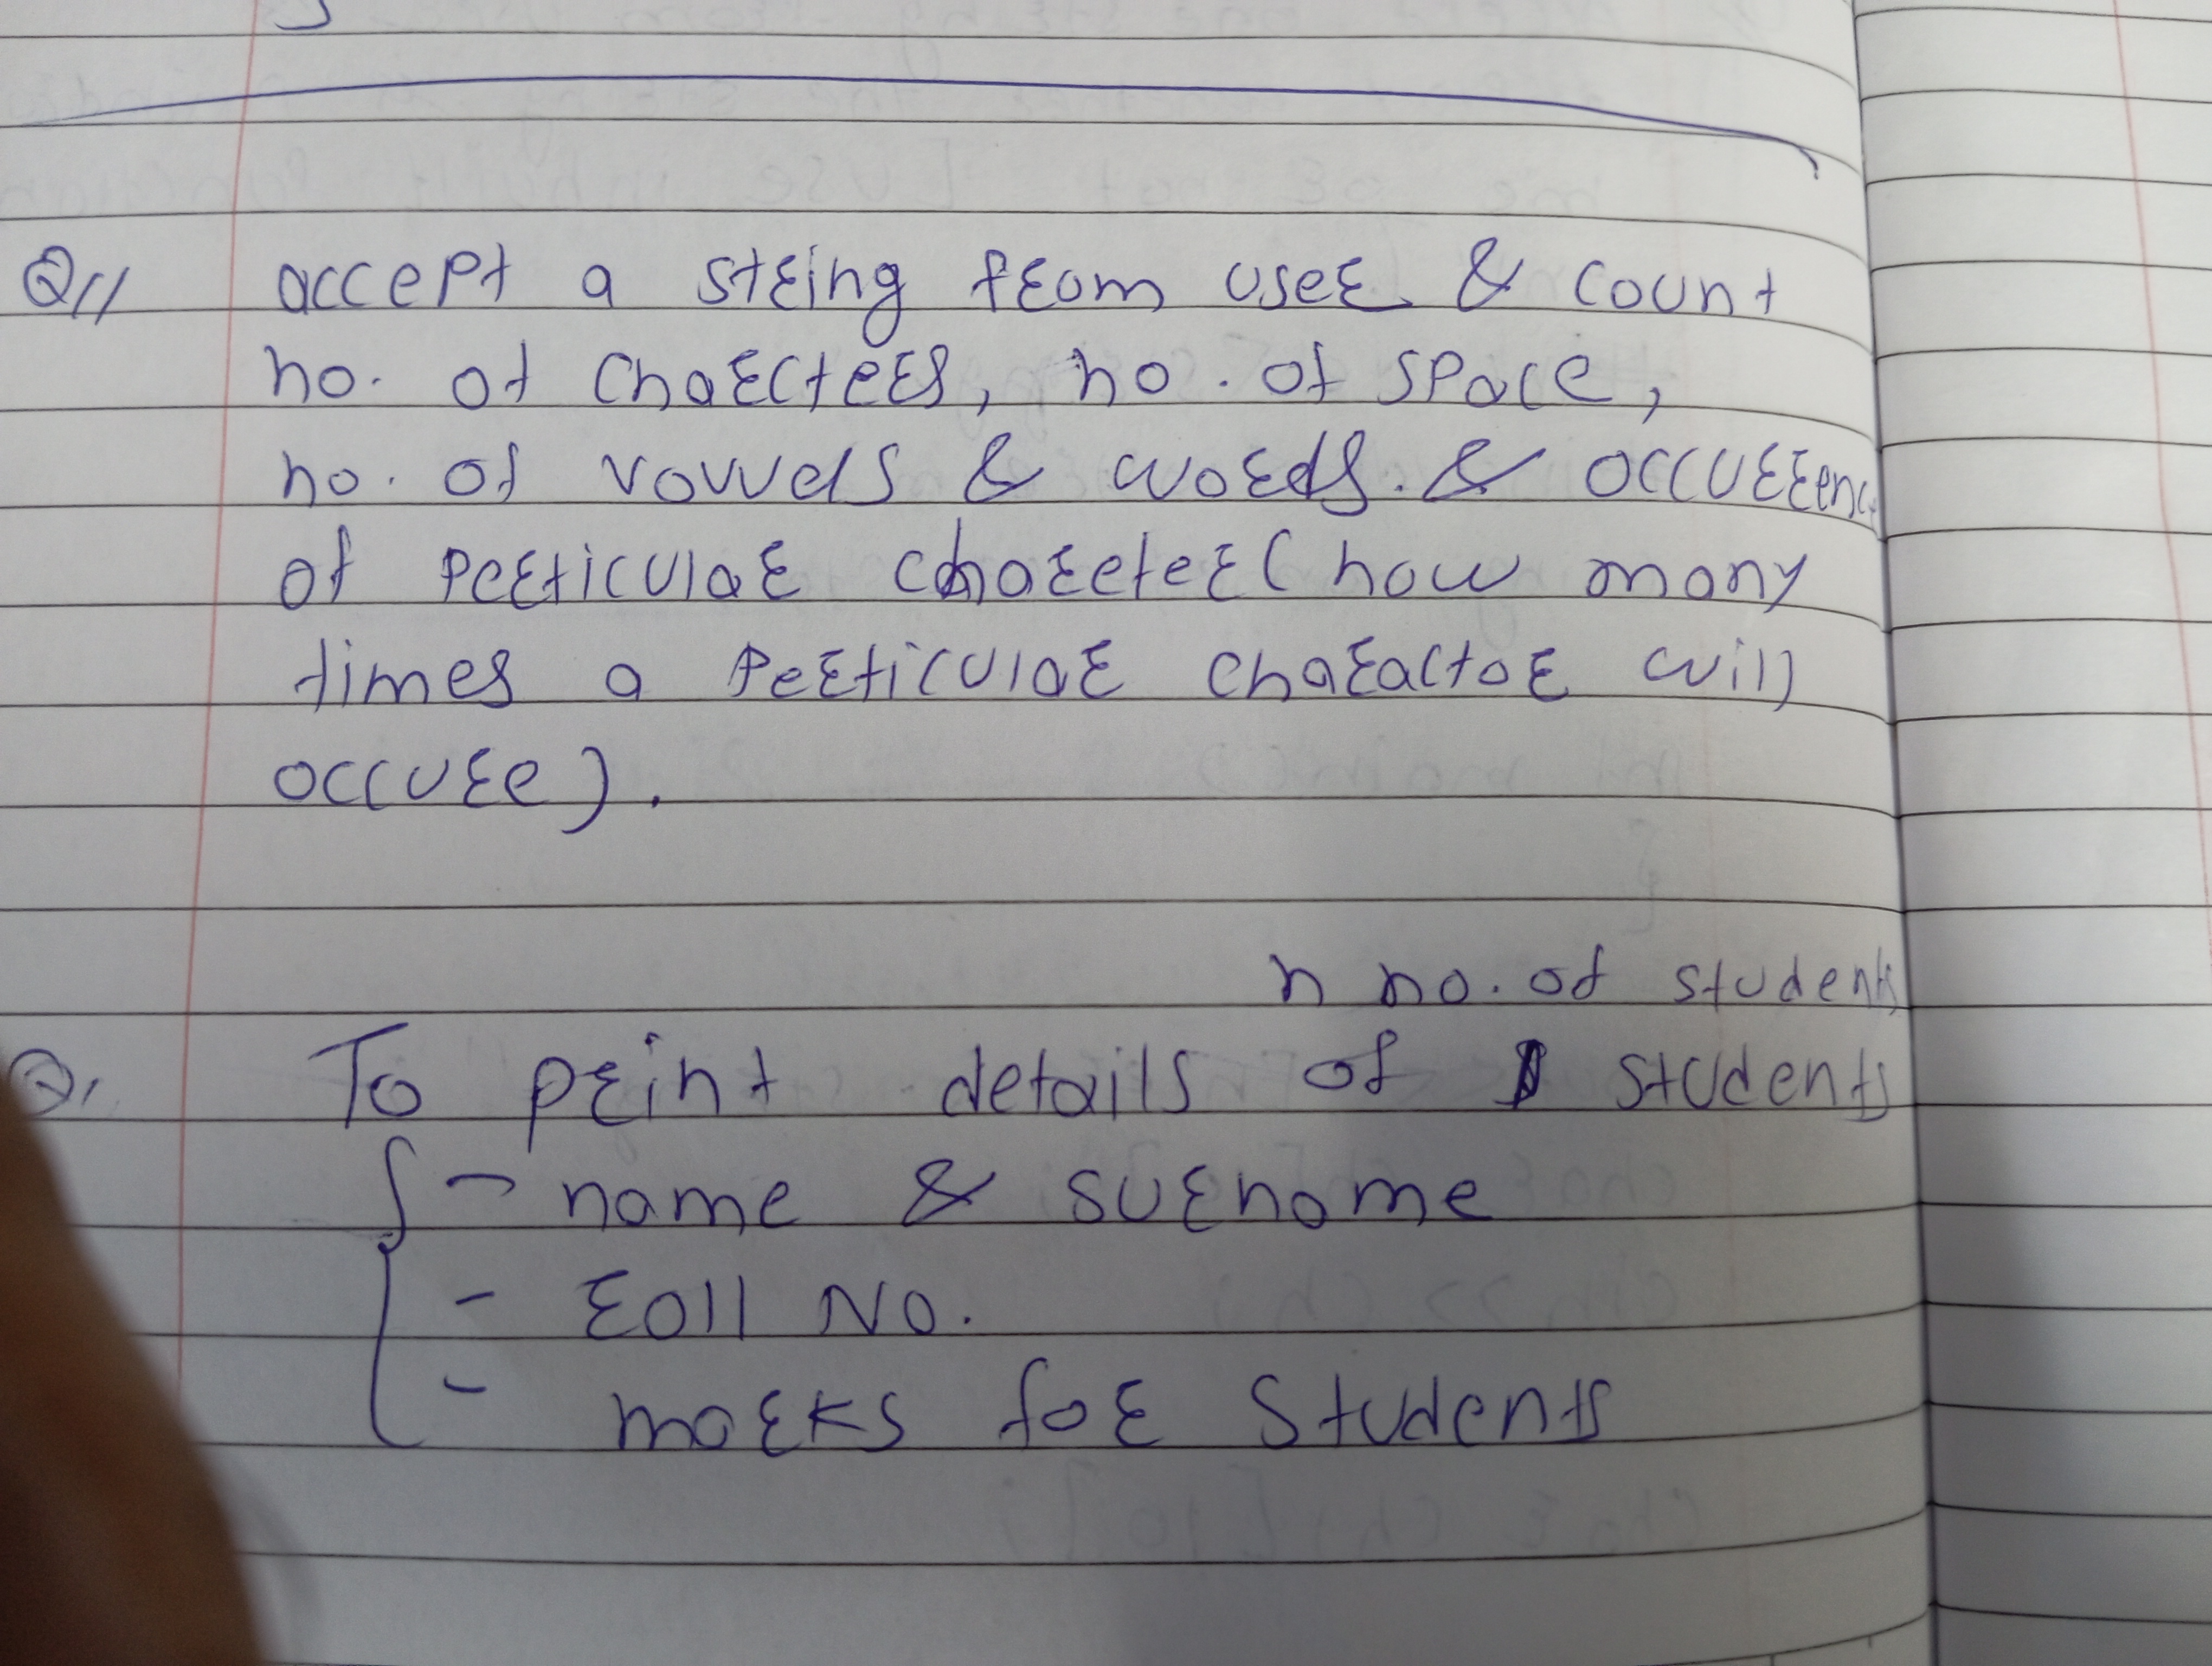 Q// accept a string from user & count
no. of charcters, no. of space,
no. of vowels & words. & occurrenc
of perticular chareter (how many
times a perticular charactor will
occure).
n no. of students
Q, To print details of students
- name & surname
- roll No.
- marks for students